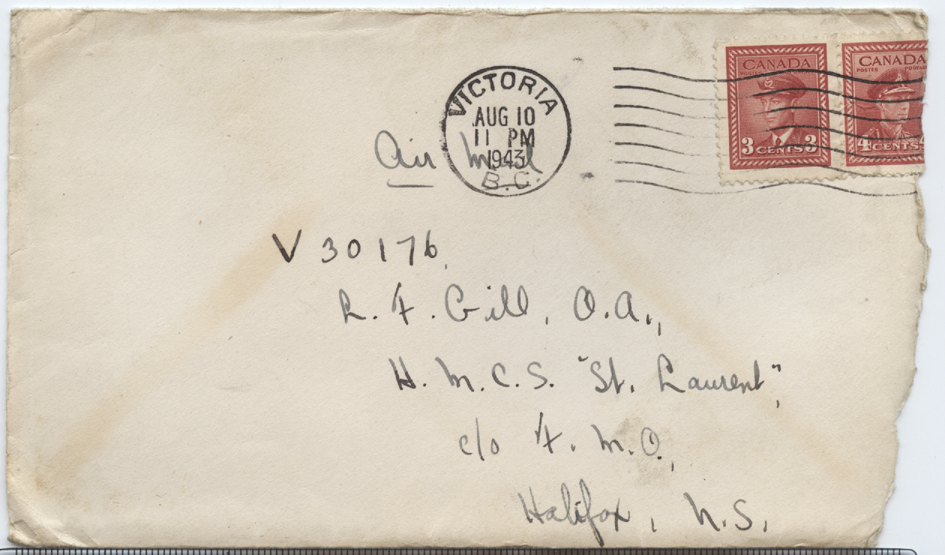 VICTORIA
AUG 10
11 PM
1943
B.C.
CANADA
POSTES POSTAGE
3 CENTS 3
CANADA
POSTES POSTAGE
4 CENTS
Air Mail
V 30176
R. F. Gill, O.A.,
H.M.C.S. "St. Laurent",
c/o F.M.O.,
Halifax, N.S.